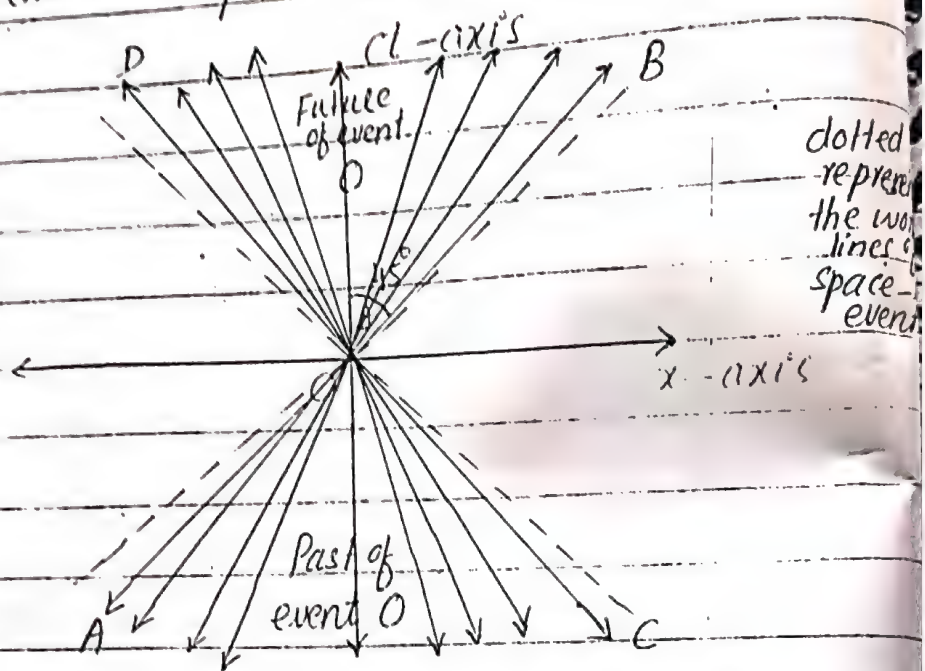 Ct -axis
D
B
Future
of event
O
45°
dotted
represe
the wo
lines o
space-
event
x -axis
O
Past of
event O
A
C